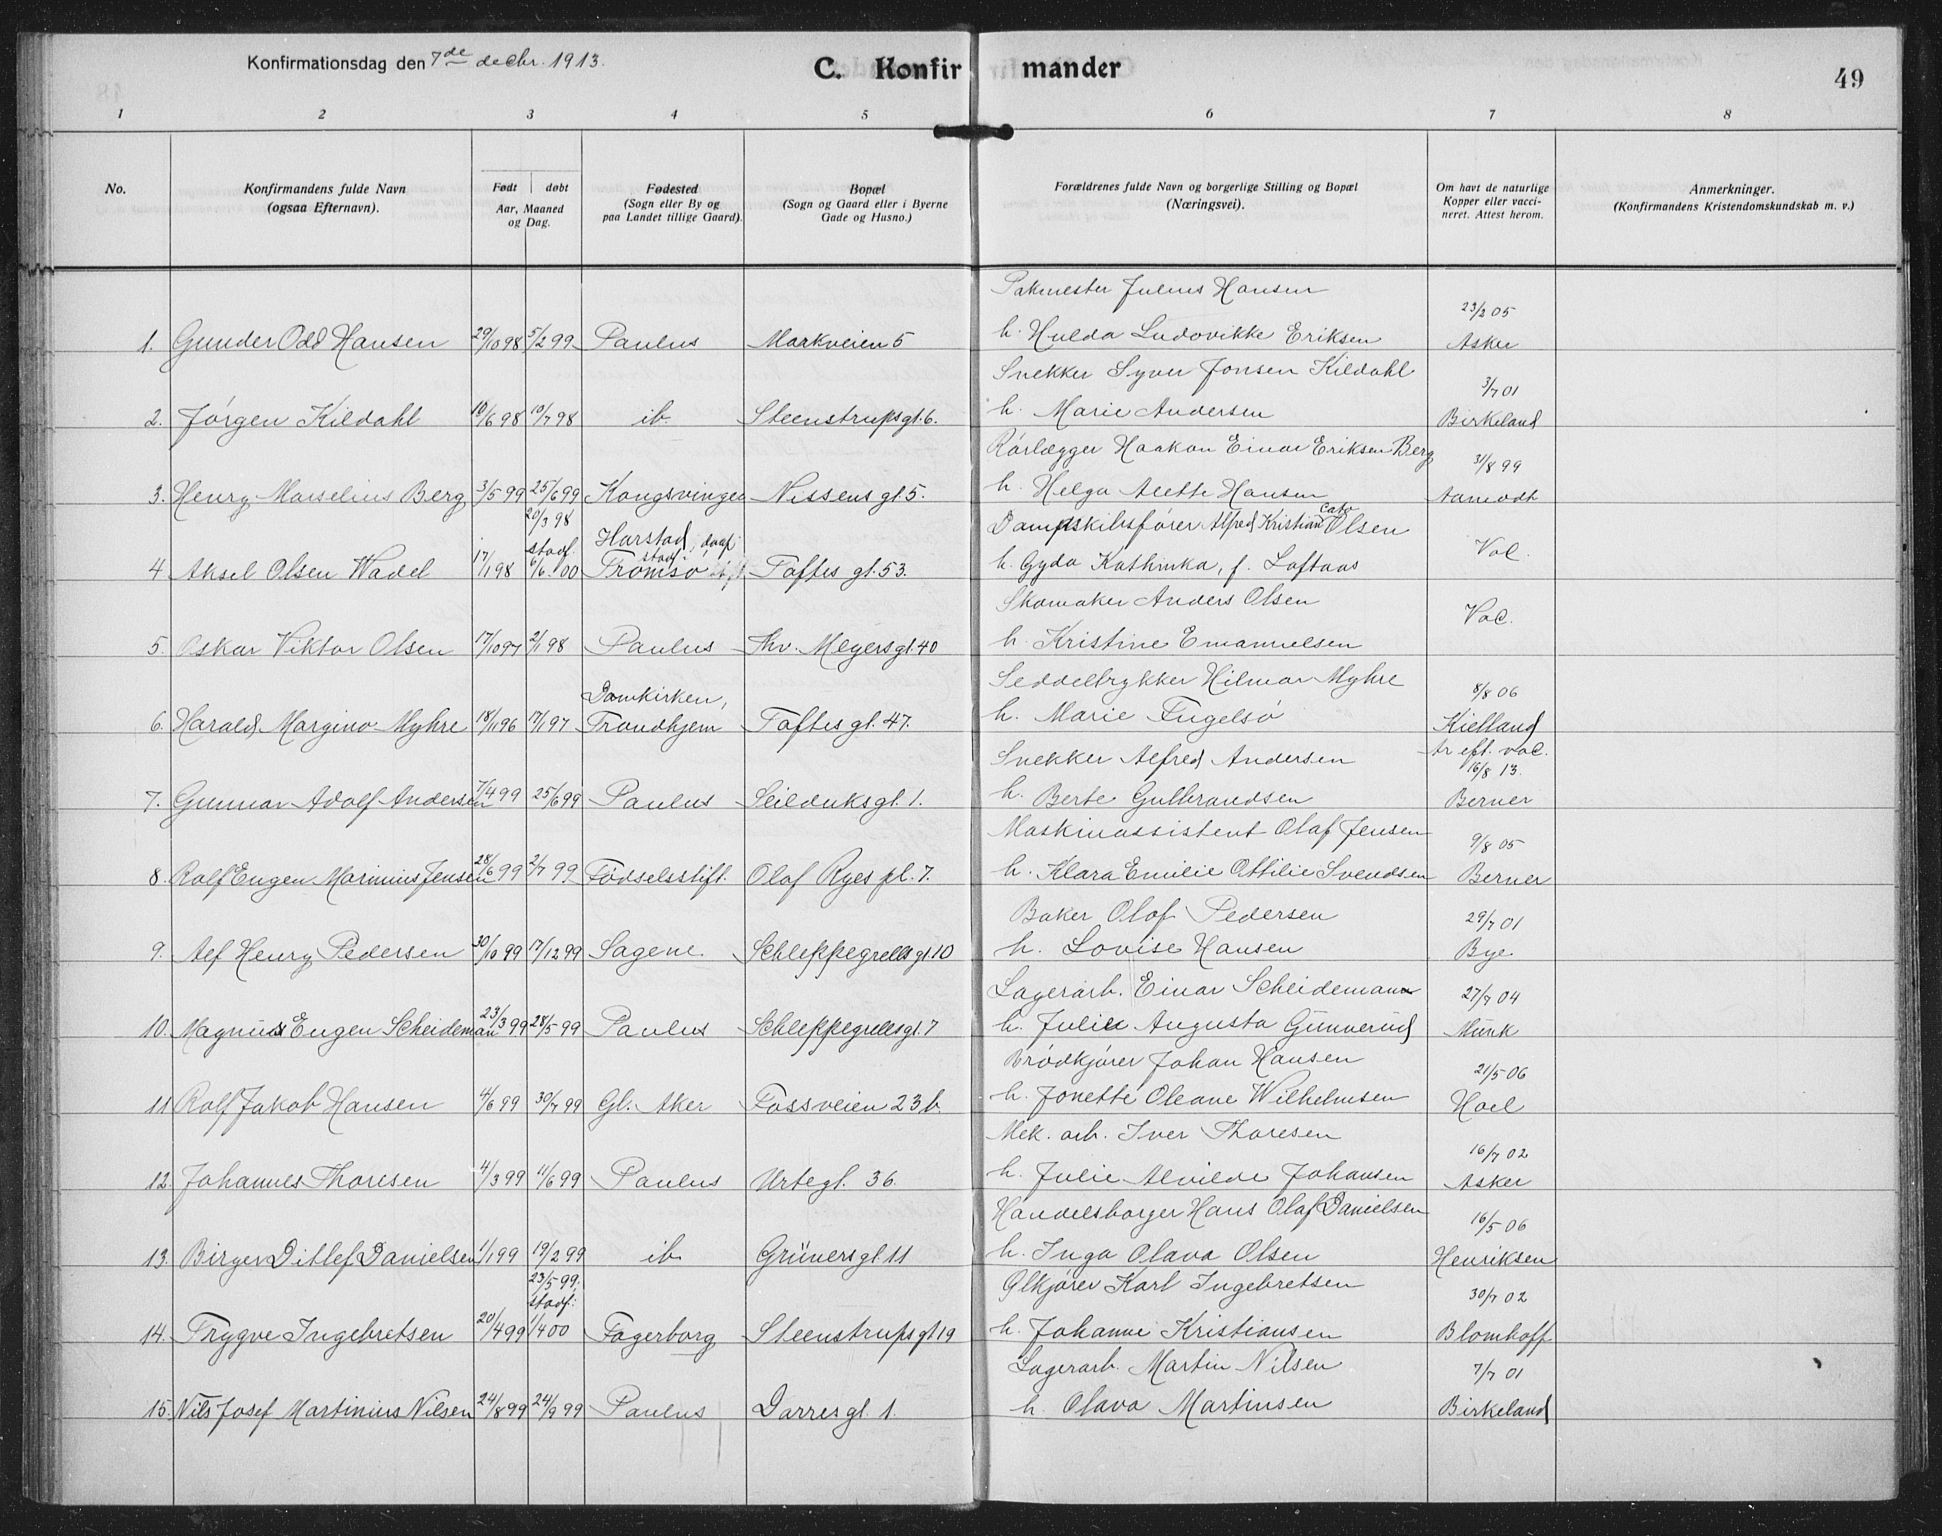 Konfirmationsdag den 7de decbr. 1913.
C. Konfirmander
49
1 2 3 4 5 6 7 8
No.
Konfirmandens fulde Navn
(ogsaa Efternavn).
Født døbt
Aar, Maaned
og Dag.
Fødested
(Sogn eller By og
paa Landet tillige Gaard).
Bopæl
(Sogn og Gaard eller i Byerne
Gade og Husno.)
Forældrenes fulde Navn og borgerlige Stilling og Bopæl
(Næringsvei).
Om havt de naturlige
Kopper eller vacci-
neret. Attest herom.
Anmerkninger.
(Konfirmandens Kristendomskundskab m. v.)
Pakmester Julius Hansen
23/2 05
1. Gunder Odd Hansen 29/10 98 5/2 99 Paulus Markveien 5 h. Hulda Ludovikke Eriksen Asker
Snekker Syver Jonsen Kildahl
3/7 01
2. Jørgen Kildahl 10/6 98 10/7 98 ib. Steenstrupsgt. 6. h. Marie Andersen Birkeland
Rørlægger Haakon Einar Eriksen Berg
31/8 99
3. Henry Marselius Berg 3/5 99 25/6 99 Kongsvinger Nissens gt. 5. h. Helga Alette Hansen Aamodt
20/3 98 Harstad, daaf Dampskibsfører Alfred Kristian Cato Olsen
stadf. stadf. Vac.
4. Aksel Olsen Wadel 17/1 98 6/6 00 Tromsø Toftes gt. 53. h. Gyda Kathinka, f. Loftaas
Skomaker Anders Olsen
Vac.
5. Oskar Viktor Olsen 17/10 97 2/1 98 Paulus Thv. Meyersgt. 40 h. Kristine Emanuelsen
Domkirken, Seddeltrykker Hilmar Myhre
8/8 06
6. Harald Margino Myhre 18/11 96 17/1 97 Trondhjem Toftes gt. 47. h. Marie Fugelsø Kielland
Snekker Alfred Andersen
Ar eft. vac.
16/8 13.
7. Gunnar Adolf Andersen 7/4 99 25/6 99 Paulus Seilduksgt. 1. h. Berte Gulbrandsen Berner
Maskinassistent Olaf Jensen
9/8 05
8. Rolf Eugen Marinius Jensen 28/6 99 2/7 99 Fødselsstift. Olaf Ryes pl. 7. h. Klara Emilie Ottilie Svendsen Berner
Baker Olaf Pedersen
29/7 01
9. Alf Henry Pedersen 30/10 99 17/12 99 Sagene Schleppegrells gt. 10 h. Lovise Hansen Bye
Lagerarb. Einar Scheidemann
27/7 04
10. Magnus Eugen Scheideman 23/3 99 28/5 99 Paulus Schleppegrellsgt. 7 h. Julie Augusta Gunnerud Munk
Brødkjører Johan Hansen
21/5 06
11 Rolf Jakob Hansen 4/6 99 30/7 99 Gl. Aker Fossveien 23 b h. Jonette Oleane Wilhelmsen Hoel
Mek. arb. Iver Thoresen
16/7 02
12. Johannes Thoresen 4/3 99 11/6 99 Paulus Urtegt. 36. h. Julie Alvilde Johansen Asker
Handelsborger Hans Olaf Danielsen
16/5 06
13. Birger Ditlef Danielsen 1/1 99 19/2 99 ib Grünersgt. 11 h. Inga Olava Olsen Henriksen
23/5 99. Ølkjører Karl Ingebretsen
stadf: 30/7 02
14. Trygve Ingebretsen 20/4 99 1/4 00 Fagerborg Steenstrupsgt 19 h. Johanne Kristiansen Blomhoff
Lagerarb. Martin Nilsen
7/7 01
15. Nils Josef Martinius Nilsen 24/8 99 24/9 99 Paulus Darresgt. 1. h. Olava Martinsen Birkeland